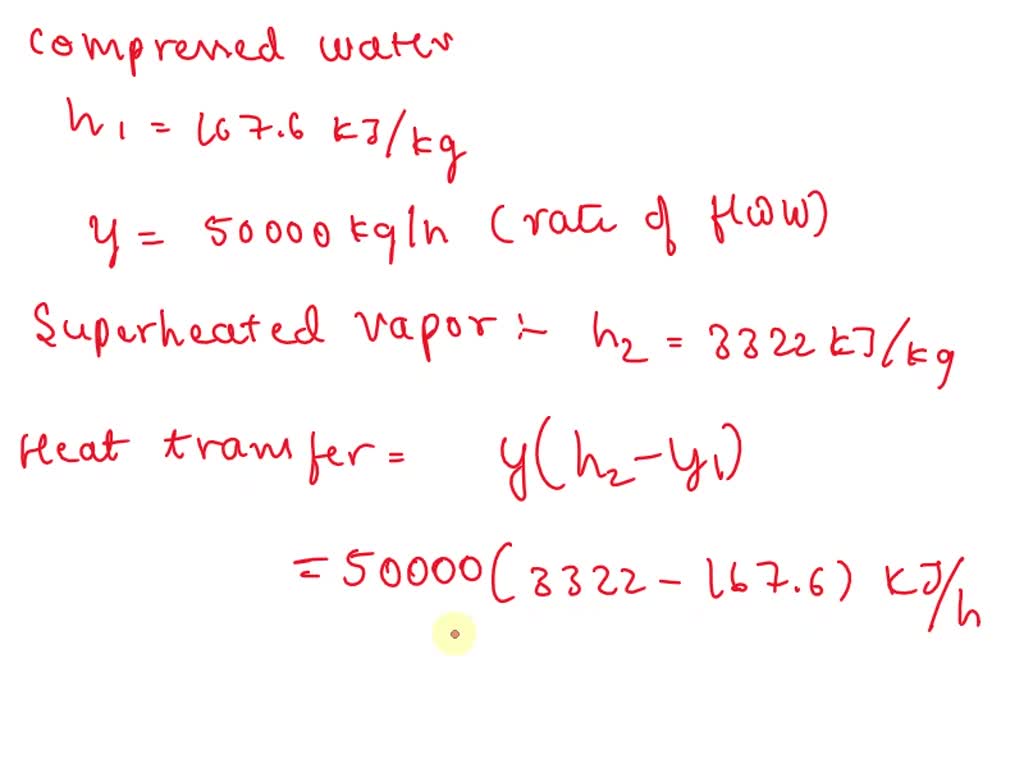 Compressed water
h1 = 167.6 kJ/kg
y = 50000 kg/h (rate of flow)
Superheated vapor :- h2 = 3322 kJ/kg
Heat transfer = y(h2-y1)
= 50000(3322-167.6) kJ/h